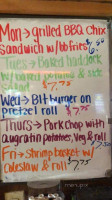 Mon → grilled BBQ chix
Sandwich w/bb fries
Tues → Baked
w/ baked potato & side
salad $7.75
Wed → BLT burger on
pretzel roll $7.75
Thurs → Pork Chop with
Augratin potatoes, Veg & roll
$7.50
Fri → Shrimp basket w/
Coleslaw & roll